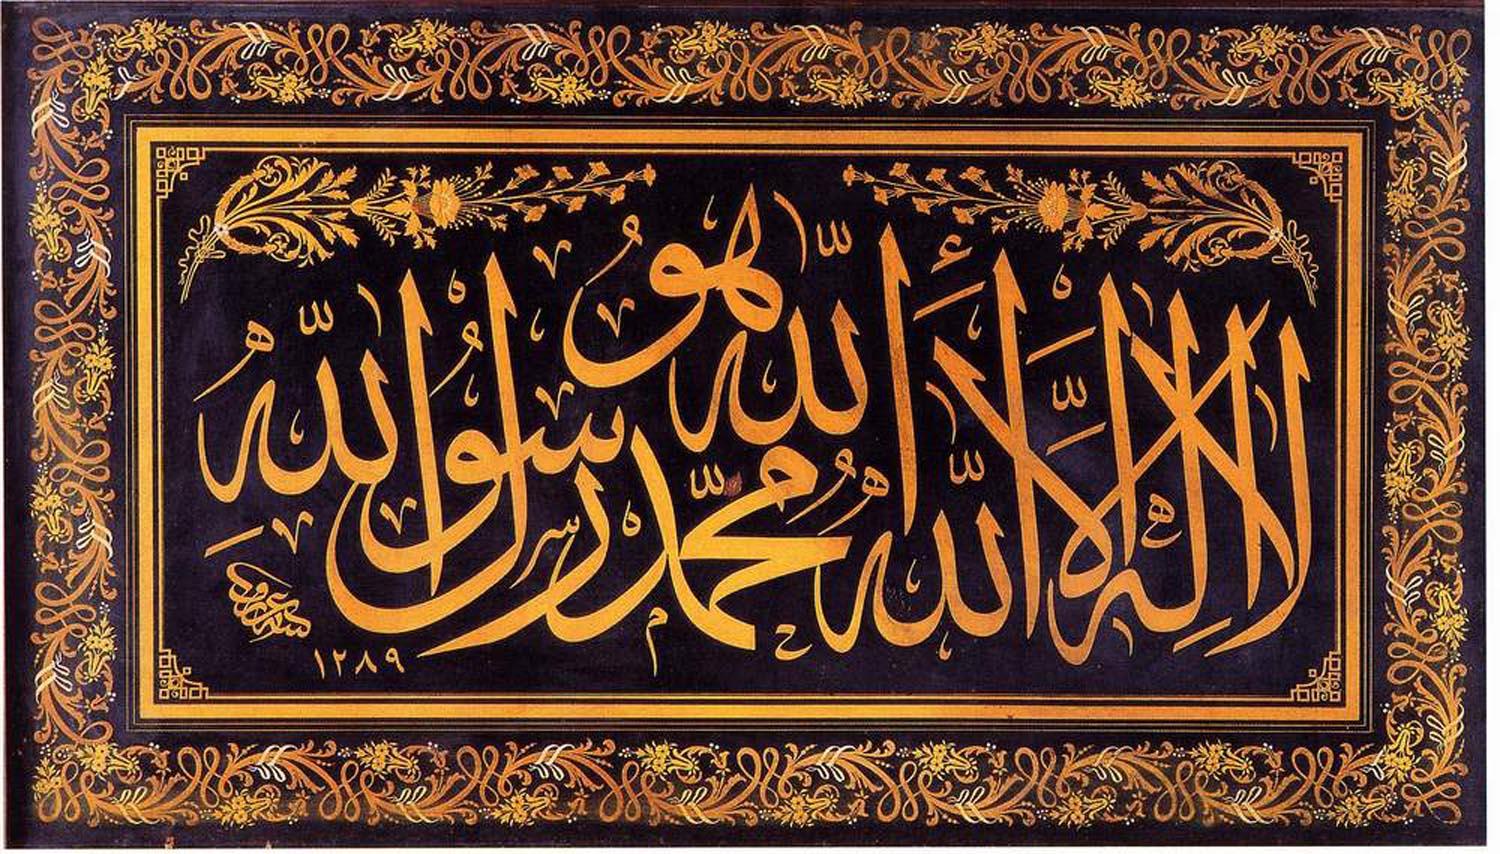 لا إله إلا الله الله هو محمد رسول الله
١٢٨٩